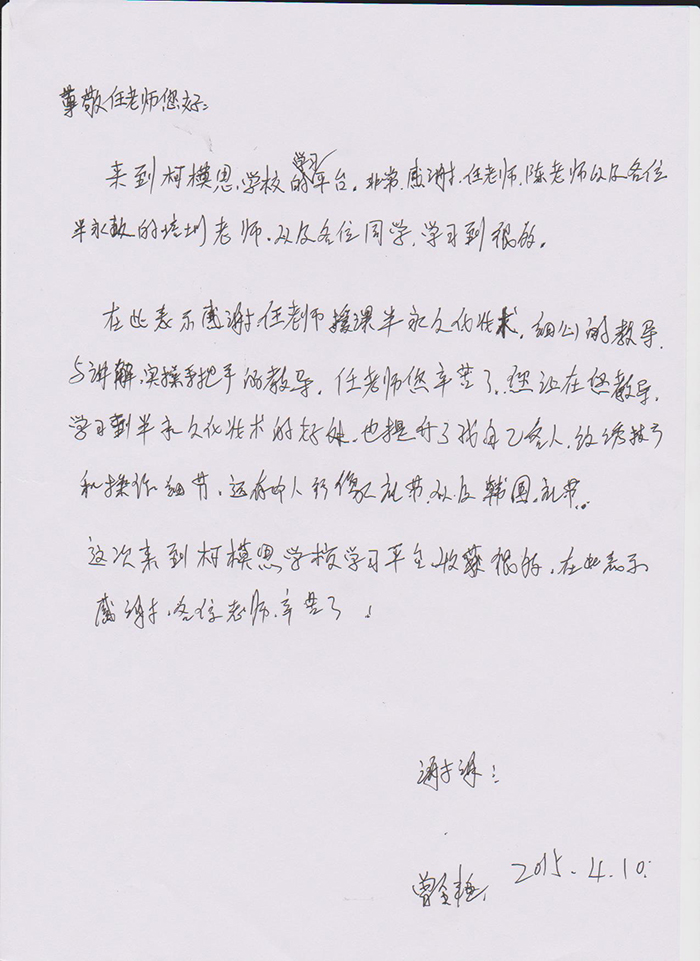 尊敬任老师您好:
来到柯模恩学校的学习平台。非常感谢任老师,陈老师以及各位
半永久的培训老师.以及各位同学,学习到很多。
在此表示感谢任老师授课半永久化妆术,细心的教导,
与讲解,实操手把手的教导,任老师您辛苦了.您让在您教导,
学习到半永久化妆术的好处.也提升了我自己个人,纹绣技巧
和操作细节,还有个人形像礼节,以及韩国礼节..
这次来到柯模恩学校学习平台收获很多,在此表示
感谢,各位老师,辛苦了!
谢谢:
曾金 2015.4.10.